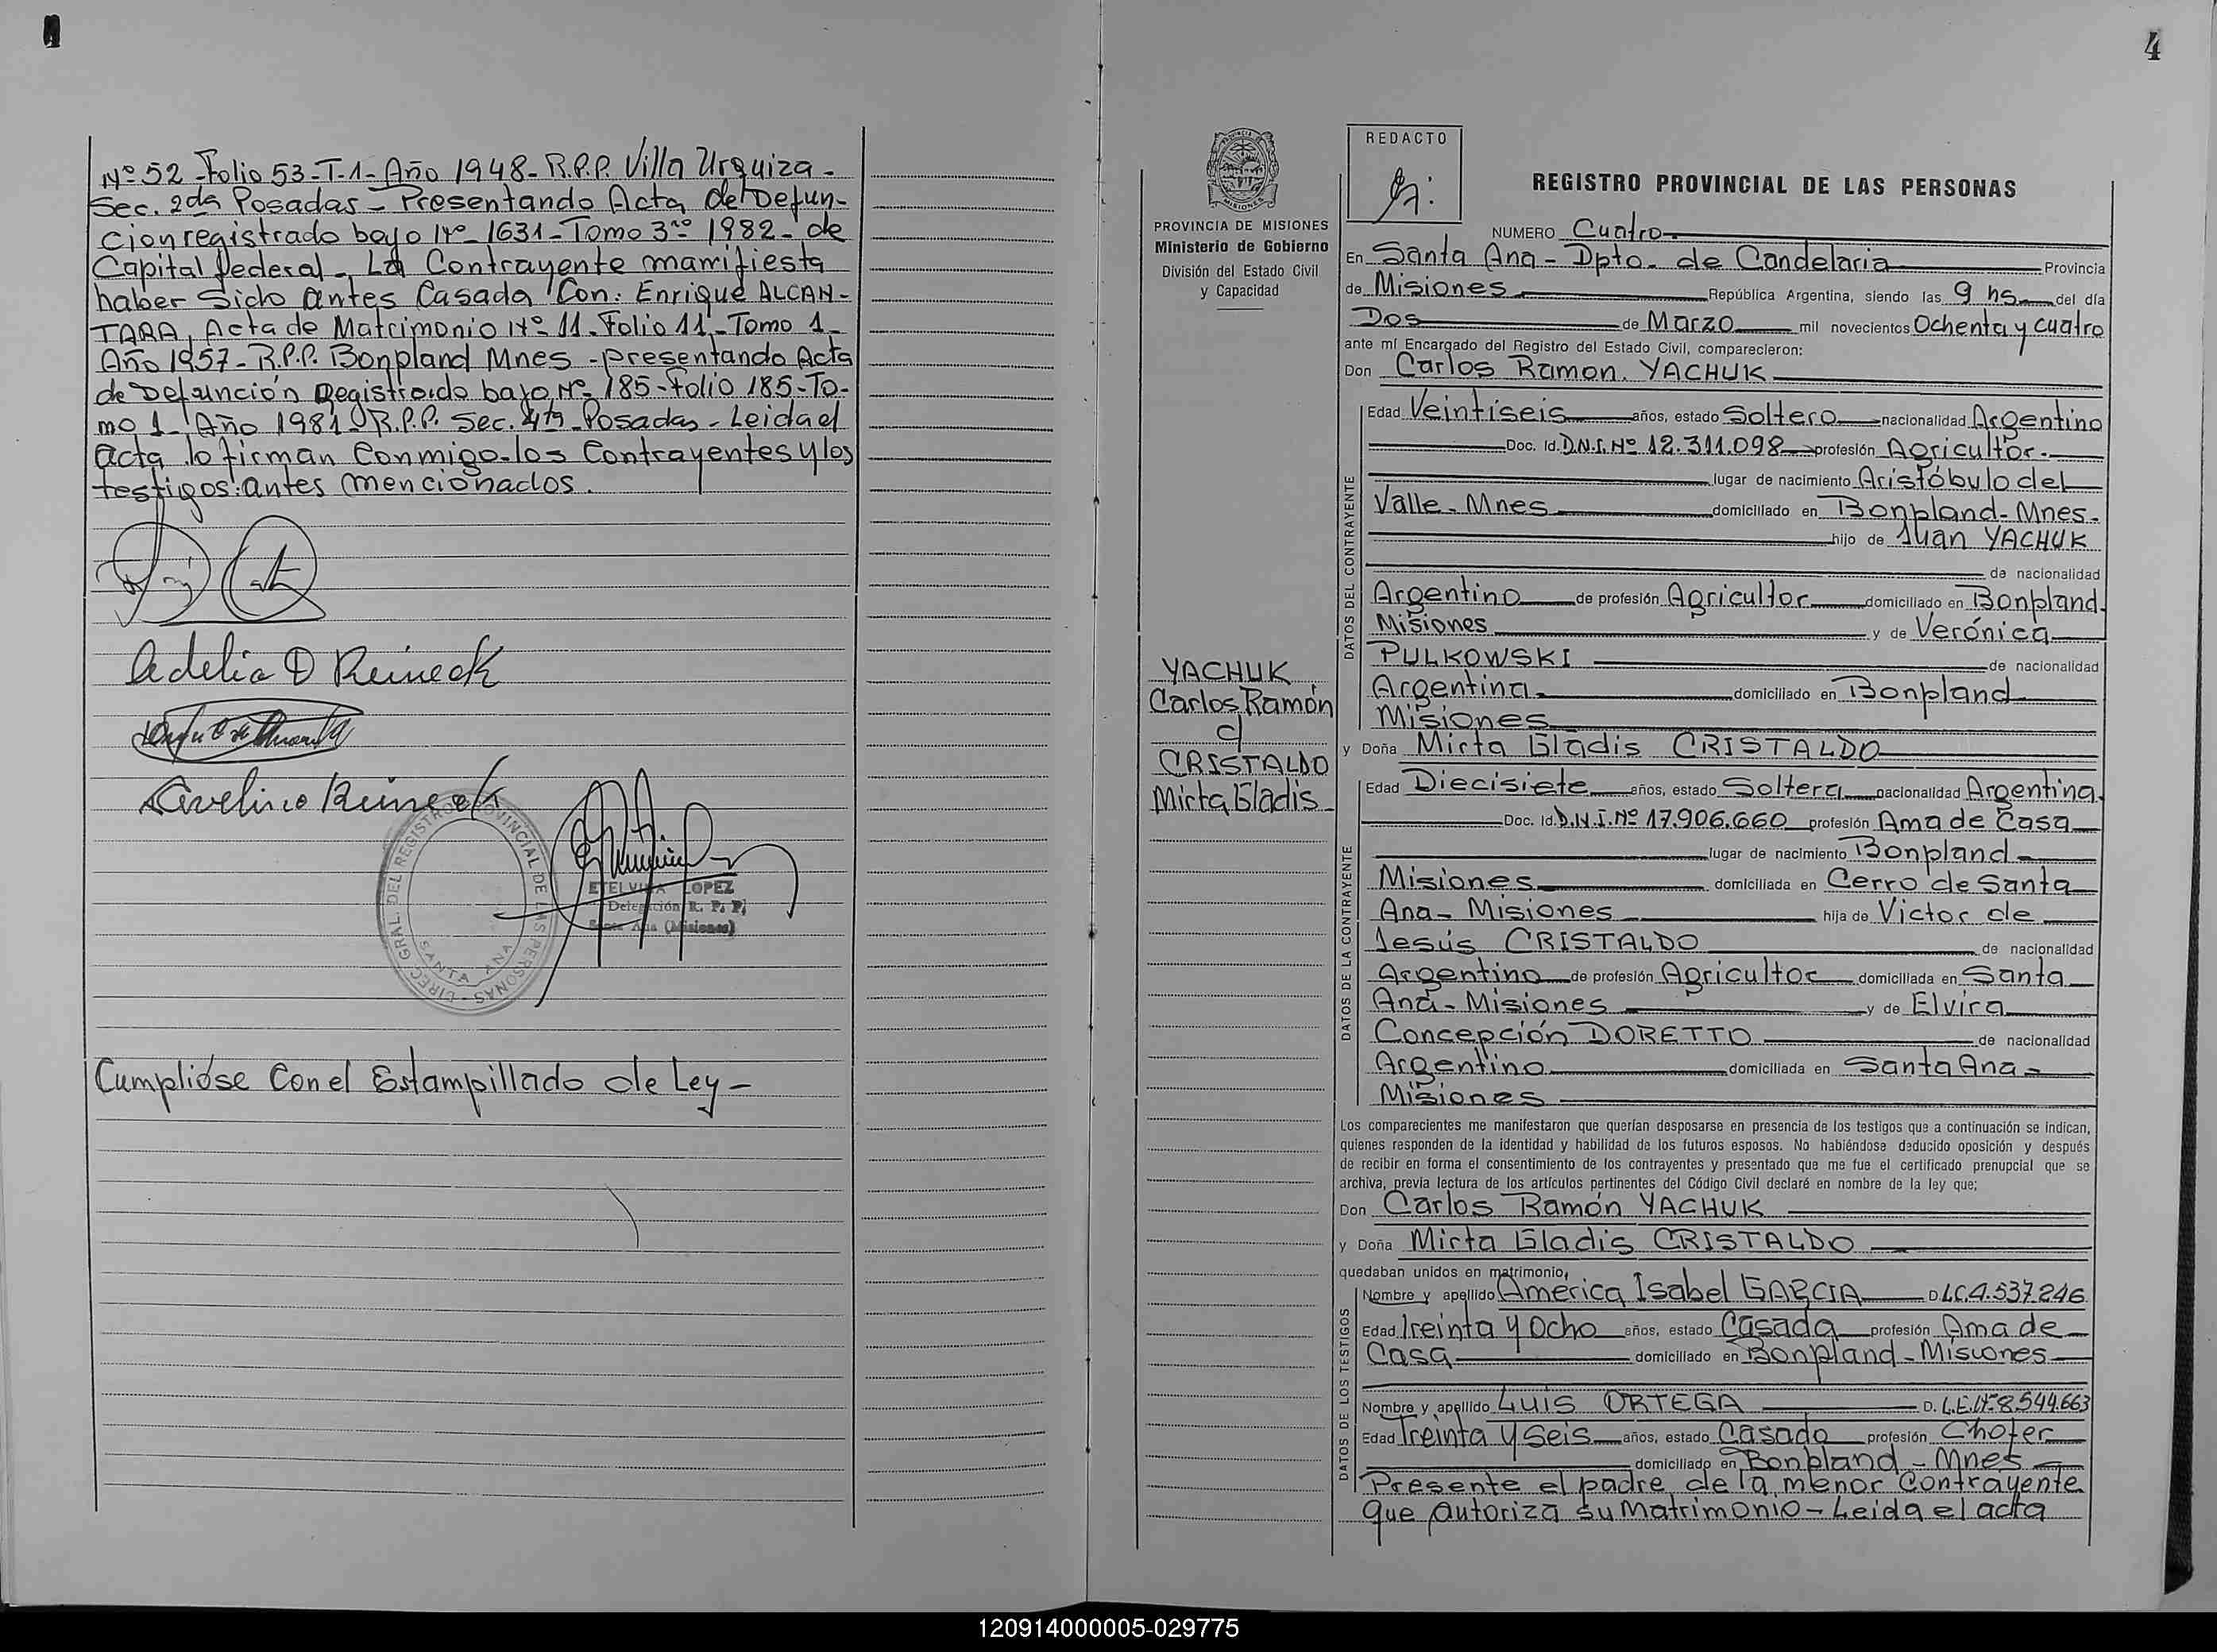 Nº 52 - Folio 53 - T-1 - Año 1948 - R.P.P. Villa Urquiza -
Sec. 2da Posadas - Presentando Acta de Defun-
cion registrado bajo Nº 1631 - Tomo 3ro 1982 - de
Capital federal - La Contrayente manifiesta
haber Sido antes Casada Con: Enrique ALCAN-
TARA, Acta de Matrimonio Nº 11 - Folio 11 - Tomo 1
Año 1957 - R.P.P. Bonpland Mnes - presentando Acta
de Defunción Registrado bajo Nº 185 - Folio 185 - To-
mo 1 - Año 1981 - R.P.P. Sec. 4ta Posadas - Leida el
acta lo firman Conmigo los Contrayentes y los
testigos antes mencionados.
Adelia D Reineck
Avelino Reineck
DIREC. GRAL. DEL REGISTRO PROVINCIAL DE LAS PERSONAS
SANTA ANA
ETELVINA LOPEZ
Delegación R. P. P.
Santa Ana (Misiones)
Cumplióse Con el Estampillado de Ley -
4
PROVINCIA DE MISIONES
Ministerio de Gobierno
División del Estado Civil
y Capacidad
YACHUK
Carlos Ramón
c/
CRISTALDO
Mirta Gladis
REDACTO
REGISTRO PROVINCIAL DE LAS PERSONAS
NUMERO Cuatro
En Santa Ana - Dpto. de Candelaria Provincia
de Misiones República Argentina, siendo las 9 hs del día
Dos de Marzo mil novecientos Ochenta y cuatro
ante mí Encargado del Registro del Estado Civil, comparecieron:
Don Carlos Ramon YACHUK
DATOS DEL CONTRAYENTE
Edad Veintiseis años, estado Soltero nacionalidad Argentino
Doc. Id. D.N.I. Nº 12.311.098 profesión Agricultor
lugar de nacimiento Aristóbulo del
Valle - Mnes domiciliado en Bonpland - Mnes -
hijo de Juan YACHUK
de nacionalidad
Argentino de profesión Agricultor domiciliado en Bonpland
Misiones y de Verónica
PULKOWSKI de nacionalidad
Argentina domiciliado en Bonpland
Misiones
y Doña Mirta Gladis CRISTALDO
DATOS DE LA CONTRAYENTE
Edad Diecisiete años, estado Soltera nacionalidad Argentina
Doc. Id. D.N.I. Nº 17.906.660 profesión Ama de Casa
lugar de nacimiento Bonpland
Misiones domiciliada en Cerro de Santa
Ana - Misiones hija de Victor de
Jesús CRISTALDO de nacionalidad
Argentino de profesión Agricultor domiciliada en Santa
Ana - Misiones y de Elvira
Concepción DORETTO de nacionalidad
Argentino domiciliada en Santa Ana -
Misiones
Los comparecientes me manifestaron que querían desposarse en presencia de los testigos que a continuación se indican,
quienes responden de la identidad y habilidad de los futuros esposos. No habiéndose deducido oposición y después
de recibir en forma el consentimiento de los contrayentes y presentado que me fue el certificado prenupcial que se
archiva, previa lectura de los artículos pertinentes del Código Civil declaré en nombre de la ley que;
Don Carlos Ramón YACHUK
y Doña Mirta Gladis CRISTALDO
quedaban unidos en matrimonio,
DATOS DE LOS TESTIGOS
Nombre y apellido America Isabel GARCIA D L.C. 4.537.246
Edad Treinta y Ocho años, estado Casada profesión Ama de
Casa domiciliado en Bonpland - Misiones
Nombre y apellido Luis ORTEGA D. L.E. Nº 8.544.663
Edad Treinta y Seis años, estado Casado profesión Chofer
domiciliado en Bonpland - Mnes
Presente el padre de la menor Contrayente
que autoriza su Matrimonio - Leida el acta
120914000005-029775